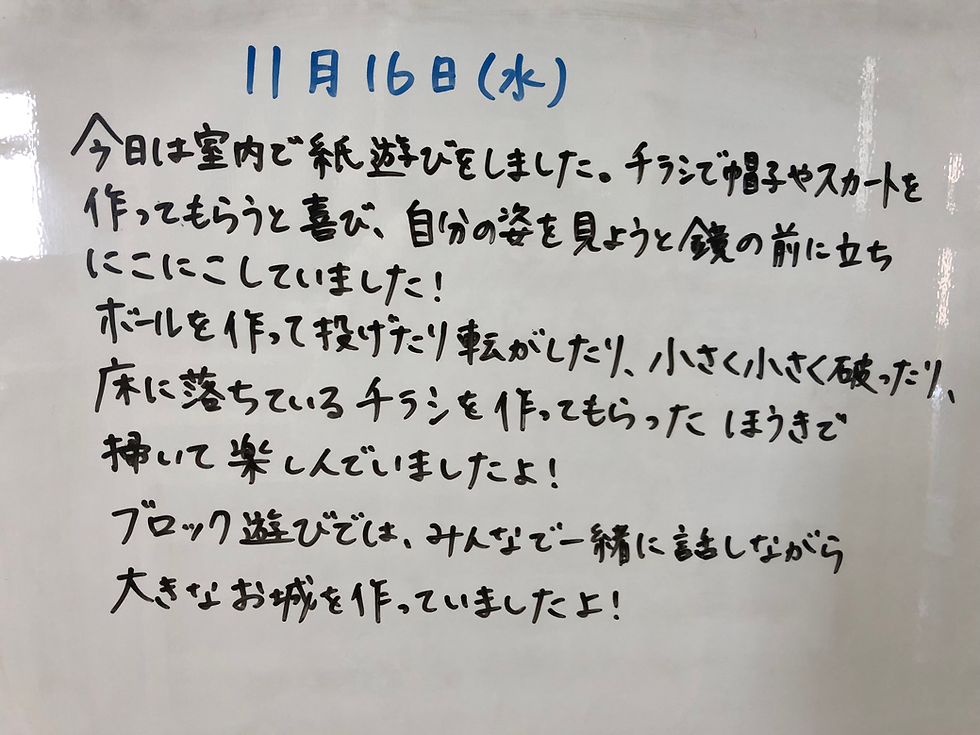 11月16日(水)
今日は室内で紙遊びをしました。チラシで帽子やスカートを
作ってもらうと喜び、自分の姿を見ようと鏡の前に立ち
にこにこしていました!
ボールを作って投げたり転がしたり、小さく小さく破ったり、
床に落ちているチラシを作ってもらったほうきで
掃いて楽しんでいましたよ!
ブロック遊びでは、みんなで一緒に話しながら
大きなお城を作っていましたよ!